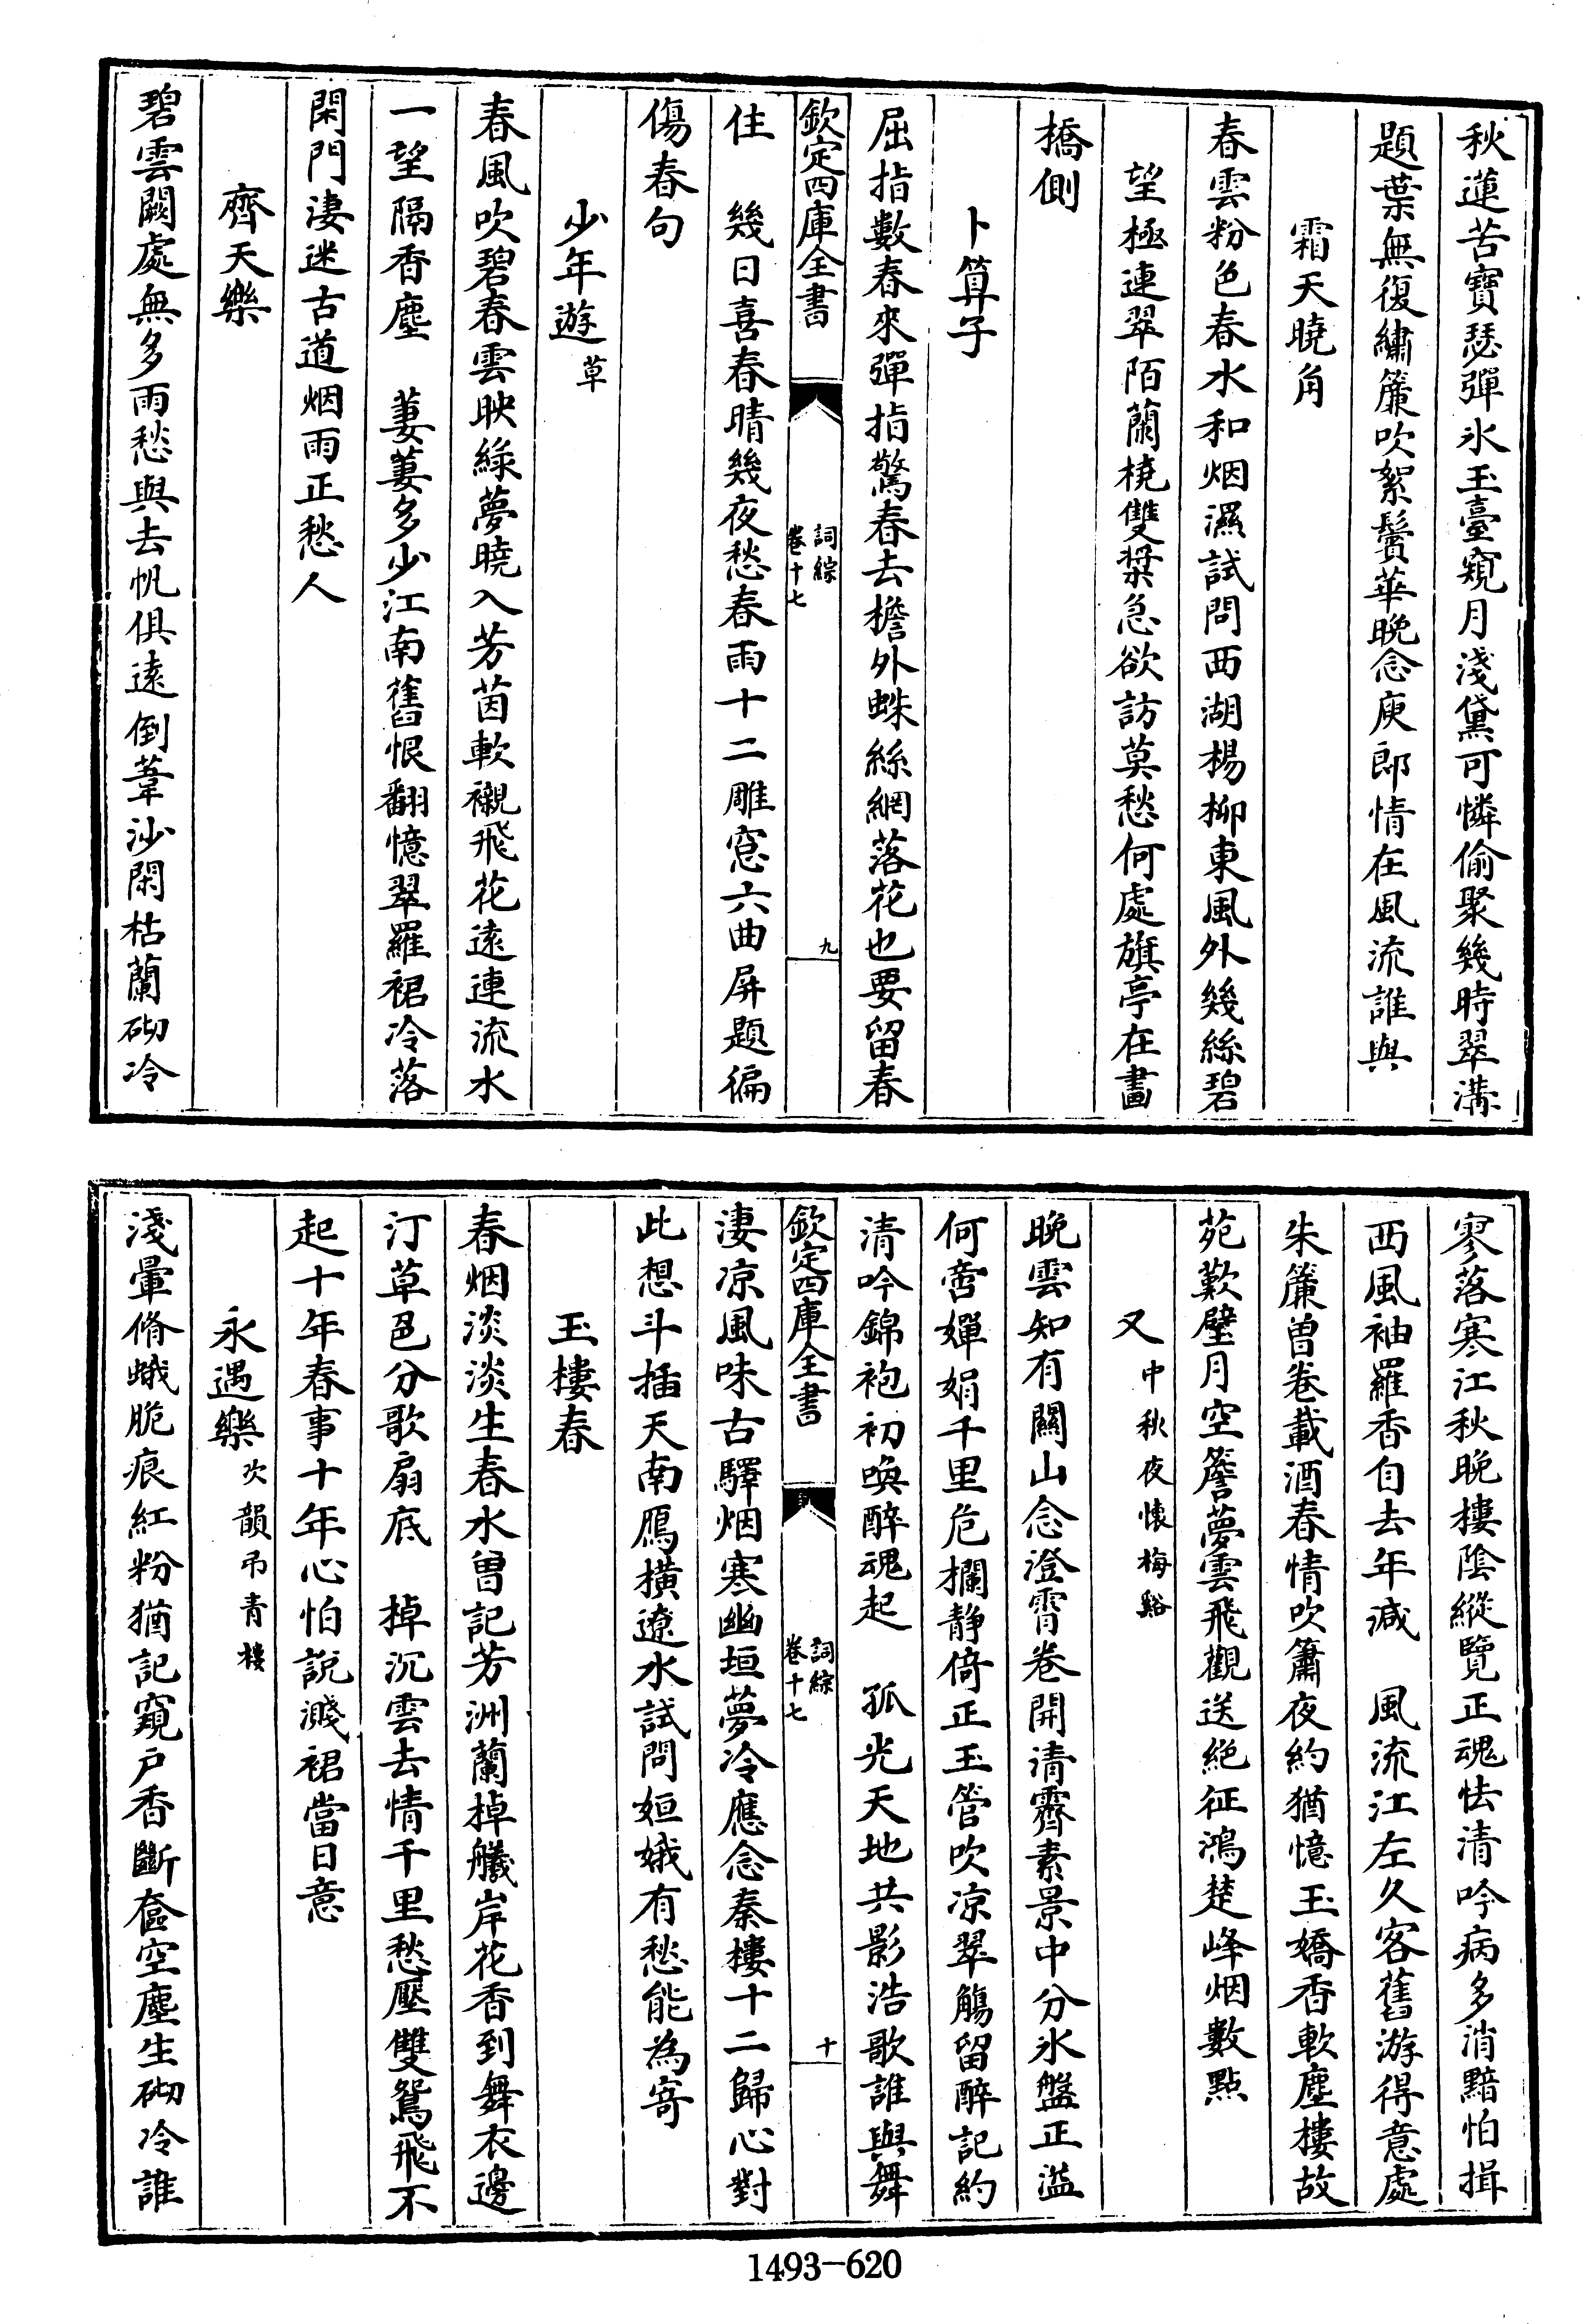 秋蓮苦寶瑟彈氷玉臺窺月淺黛可憐偷聚幾時翠溝
題葉無復繡簾吹絮鬢華晚念庾郎情在風流誰與
霜天曉角
春雲粉色春水和烟濕試問西湖楊柳東風外幾絲碧
望極連翠陌蘭橈雙槳急欲訪莫愁何處旗亭在畵
橋側
卜算子
屈指數春來彈指驚春去檐外蛛絲網落花也要留春
欽定四庫全書
詞綜
卷十七
九
住　幾日喜春晴幾夜愁春雨十二雕窓六曲屏題徧
傷春句
少年遊草
春風吹碧春雲映綠夢曉入芳茵軟襯飛花逺連流水
一望隔香塵　萋萋多少江南舊恨翻憶翠羅裙冷落
閑門淒迷古道烟雨正愁人
齊天樂
碧雲闕處無多雨愁與去帆俱逺倒葦沙閑枯蘭砌冷
寥落寒江秋晚樓陰縱覽正魂怯清吟病多消黯怕揖
西風袖羅香自去年減　風流江左久客舊游得意處
朱簾曾卷載酒春情吹簫夜約猶憶玉嬌香軟塵樓故
苑歎壁月空簷夢雲飛觀送絶征鴻楚峰烟數點
又中秋夜懷梅谿
晚雲知有關山念澄霄卷開清霽素景中分氷盤正溢
何啻嬋娟千里危欄静倚正玉管吹凉翠觴留醉記約
清吟錦袍初喚醉魂起　孤光天地共影浩歌誰與舞
欽定四庫全書
詞綜
卷十七
十
淒凉風味古驛烟寒幽垣夢冷應念秦樓十二歸心對
此想斗揷天南鴈橫遼水試問姮娥有愁能為寄
玉樓春
春烟淡淡生春水曽記芳洲蘭棹艤岸花香到舞衣邊
汀草色分歌扇底　棹沉雲去情千里愁壓雙鴛飛不
起十年春事十年心怕說濺裙當日意
永遇樂次韻弔青樓
淺暈脩蛾脆痕紅粉猶記窺户香斷奩空塵生砌冷誰
1493-620